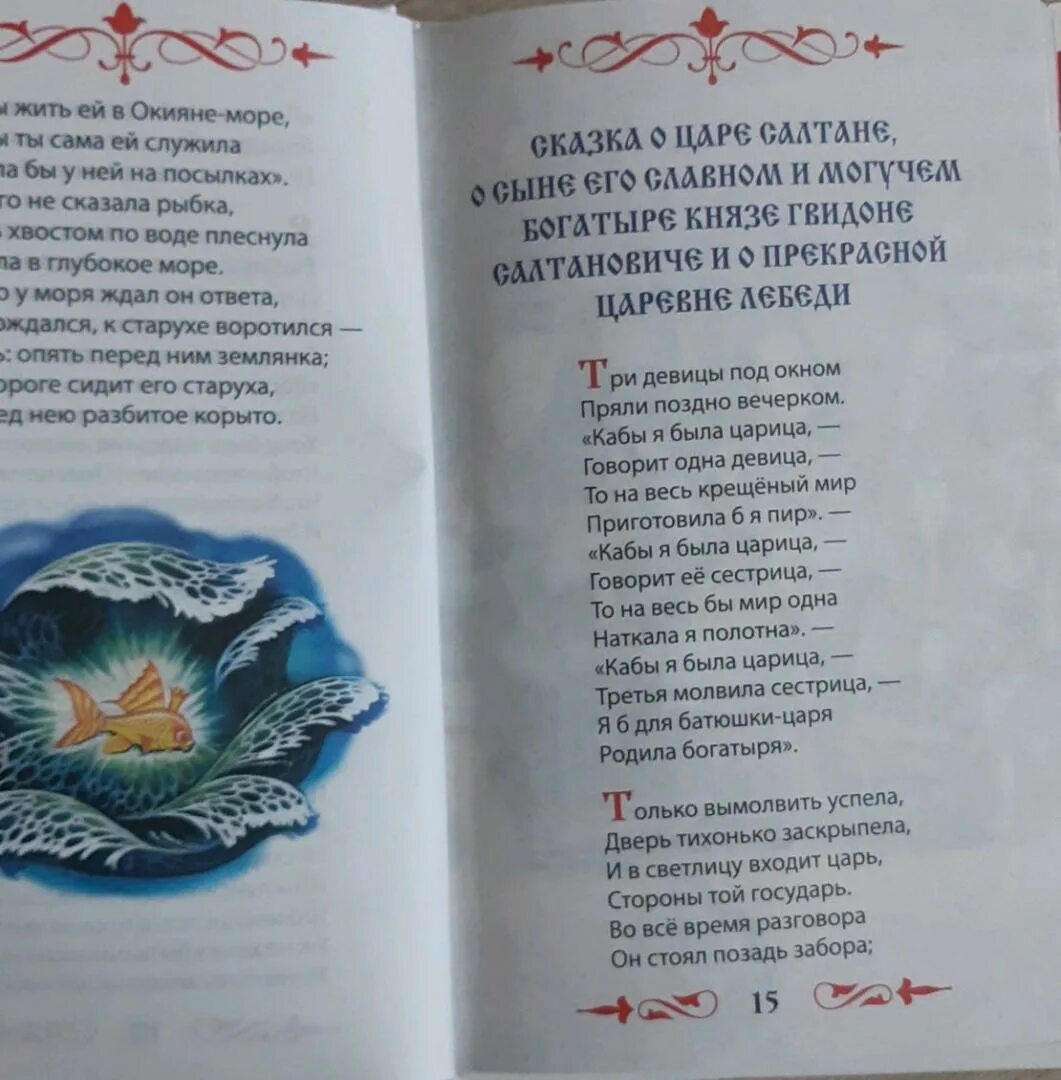 жить ей в Окияне-море,
ты сама ей служила
бы у ней на посылках».
не сказала рыбка,
хвостом по воде плеснула
в глубокое море.
у моря ждал он ответа,
к старухе воротился —
опять перед ним землянка;
сидит его старуха,
нею разбитое корыто.
СКАЗКА О ЦАРЕ САЛТАНЕ,
О СЫНЕ ЕГО СЛАВНОМ И МОГУЧЕМ
БОГАТЫРЕ КНЯЗЕ ГВИДОНЕ
САЛТАНОВИЧЕ И О ПРЕКРАСНОЙ
ЦАРЕВНЕ ЛЕБЕДИ
Три девицы под окном
Пряли поздно вечерком.
«Кабы я была царица, —
Говорит одна девица, —
То на весь крещёный мир
Приготовила б я пир». —
«Кабы я была царица, —
Говорит её сестрица, —
То на весь бы мир одна
Наткала я полотна». —
«Кабы я была царица, —
Третья молвила сестрица, —
Я б для батюшки-царя
Родила богатыря».
Только вымолвить успела,
Дверь тихонько заскрыпела,
И в светлицу входит царь,
Стороны той государь.
Во всё время разговора
Он стоял позадь забора;
15